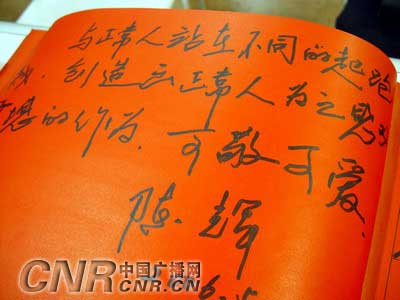 与正常人站在不同的起跑
线，创造出正常人为之
想的作为，可敬可爱。
陈辉
6.5
CNR 中国广播网
CNR.CN